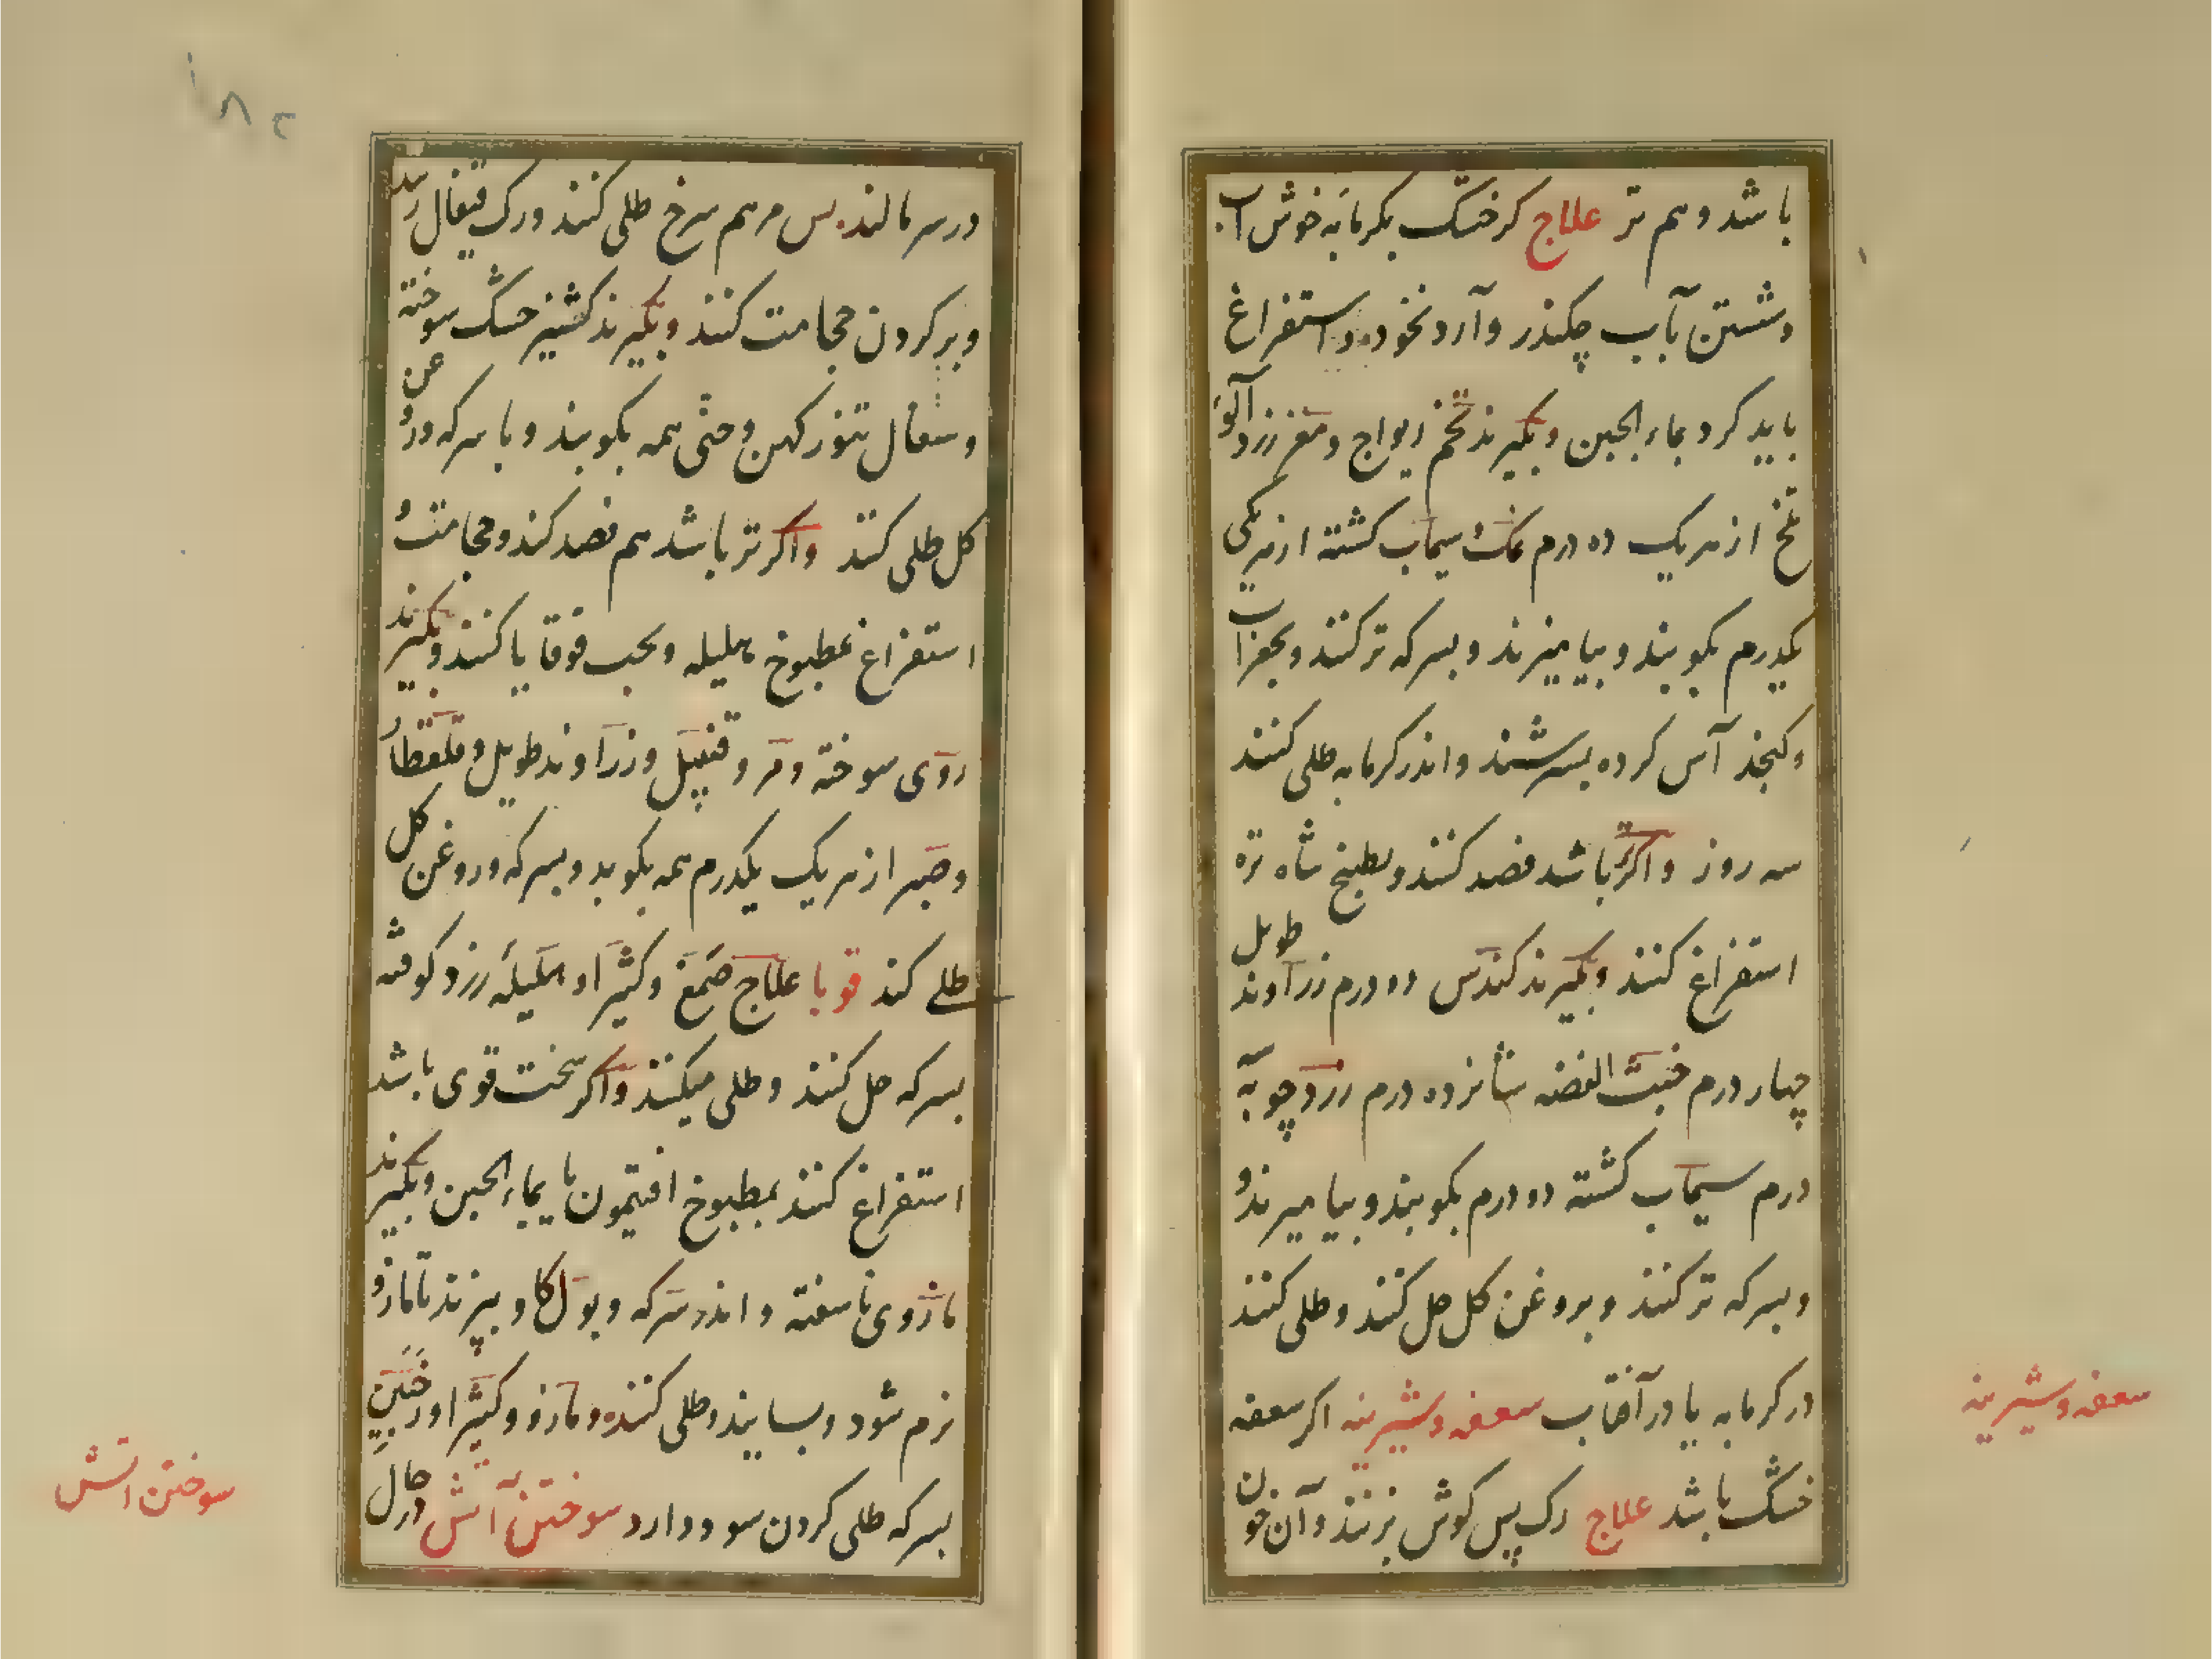 باشد و هم تر علاج کر خشک بکرمابه خوش آب
و شستن بآب چکندر و آرد نخود و استفراغ
باید کرد بماء الجبن و بکیرند تخم ایواج و مغز زردآلو
تلخ از هریک ده درم نمک و سیماب کشته از هریکی
یکدرم بکوبند و بیامیزند و بسرکه تر کنند و بجغرات
و کنجد آس کرده بسرشند و اندر کرمابه طلی کنند
سه روز و اکر تر باشد فصد کنند و بطبیخ شاه تره
استفراغ کنند و بکیرند کندس ده درم زراوند طویل
چهار درم خبث الفضه شانزده درم زردچوبه
درم سیماب کشته دو درم بکوبند و بیامیزند و
و بسرکه تر کنند و بروغن کل حل کنند و طلی کنند
در کرمابه یا در آفتاب سعفه و شیرینه اکر سعفه
خشک باشد علاج رک پس کوش بزنند و آن خون
سعفه و شیرینه
۱۸۲
در سر مالند پس مرهم سرخ طلی کنند و رک قیفال زنند
و بر کردن حجامت کنند و بکیرند کشنیز خشک سوخته
و سفال تنور کهن و حنی همه بکوبند و با سرکه و روغن
کل طلی کنند و اکر تر باشد هم فصد کند و حجامت و
استفراغ بمطبوخ هلیله و بحب قوقایا کنند و بکیرند
روی سوخته و مر و قنبیل و زراوند طویل و قلقطار
و صبر از هریک یکدرم همه بکوبد و بسرکه و روغن کل
طلی کند قوبا علاج صمغ و کثیرا و هلیله زرد کوفته
بسرکه حل کنند و طلی میکنند و اکر سخت قوی باشد
استفراغ کنند بمطبوخ افتیمون یا بماء الجبن و بکیرند
مازوی ناسفته و اندر سرکه و بول کاو بپزند تا مازو
نرم شود و بسایند و طلی کننده و مازو و کثیرا و زربیخ
بسرکه طلی کردن سود دارد سوختن آتش در حال
سوختن آتش